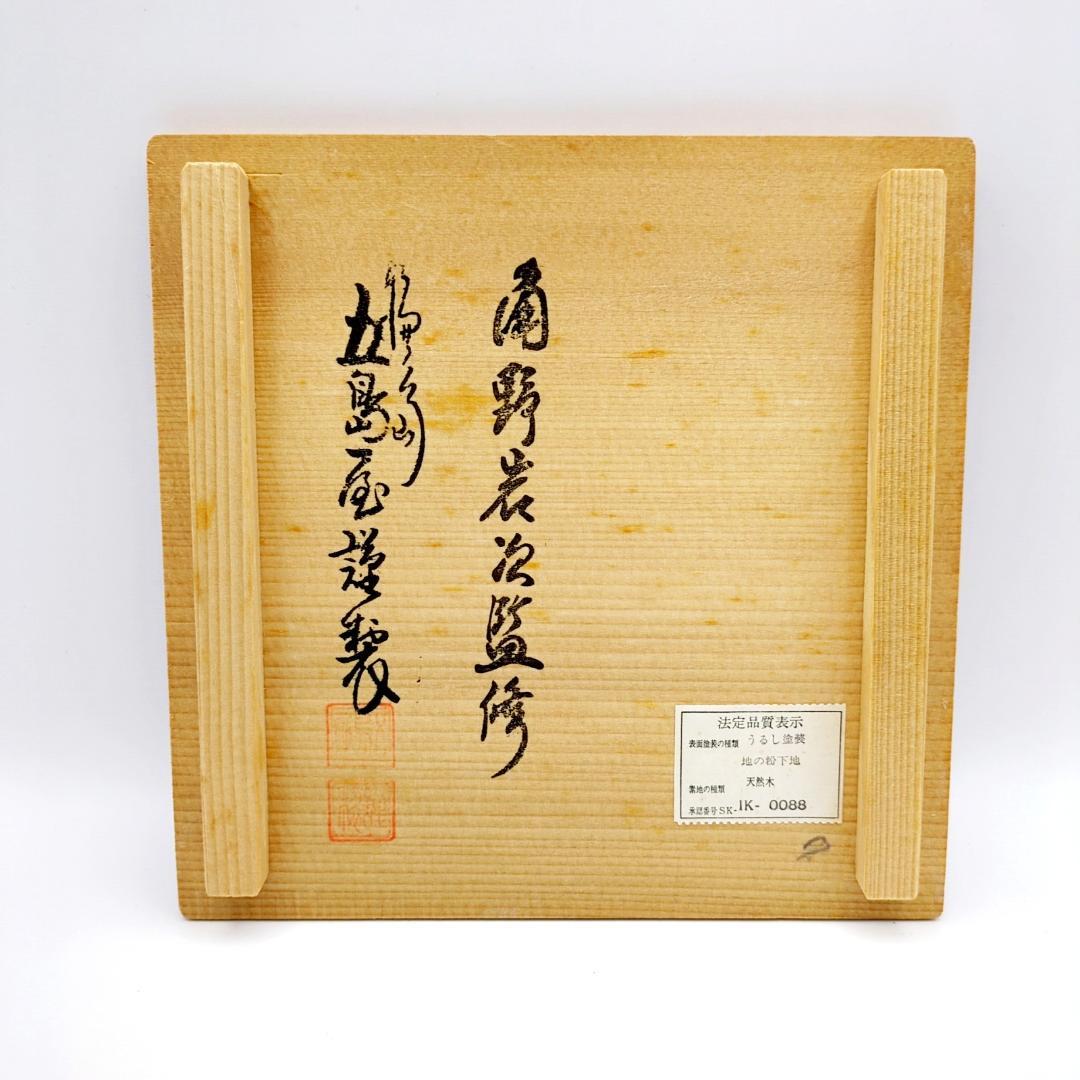 角野岩次監修
五島屋謹製
法定品質表示
表面塗装の種類 うるし塗装
地の粉下地
素地の種類 天然木
承認番号SK-IK-0088